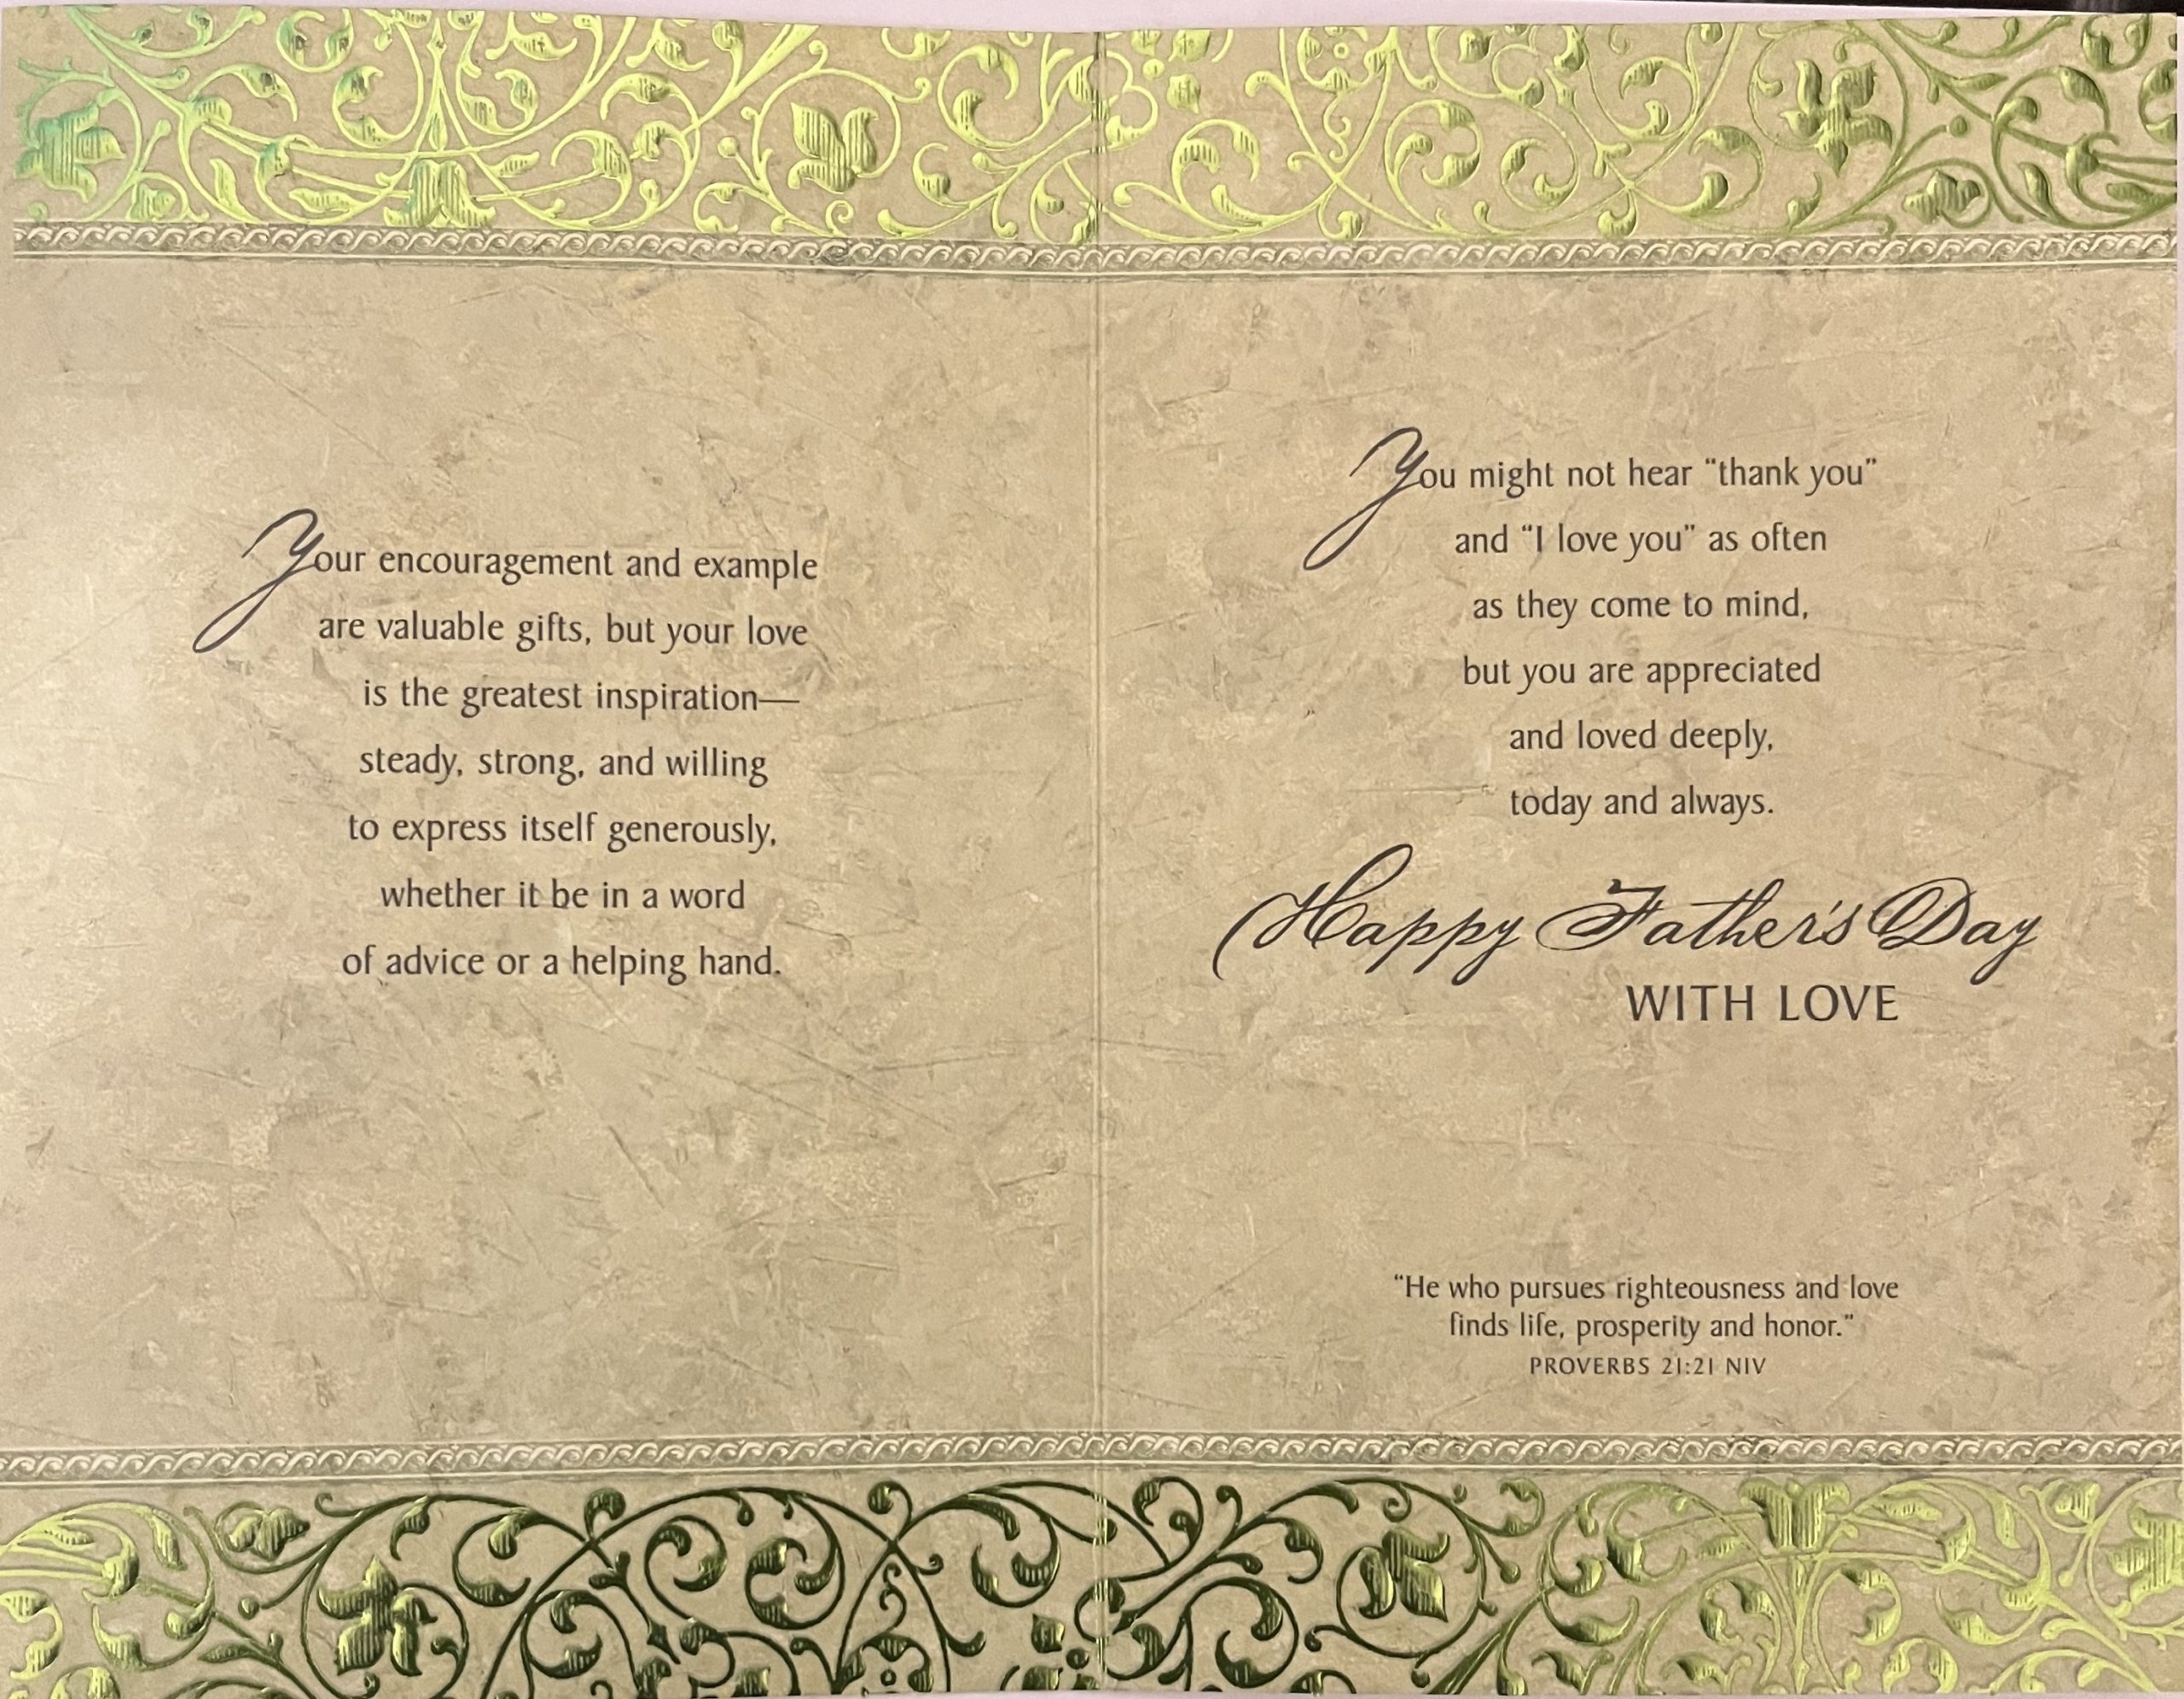 Your encouragement and example
are valuable gifts, but your love
is the greatest inspiration—
steady, strong, and willing
to express itself generously,
whether it be in a word
of advice or a helping hand.
You might not hear “thank you”
and “I love you” as often
as they come to mind,
but you are appreciated
and loved deeply,
today and always.
Happy Father's Day
WITH LOVE
“He who pursues righteousness and love
finds life, prosperity and honor.”
PROVERBS 21:21 NIV